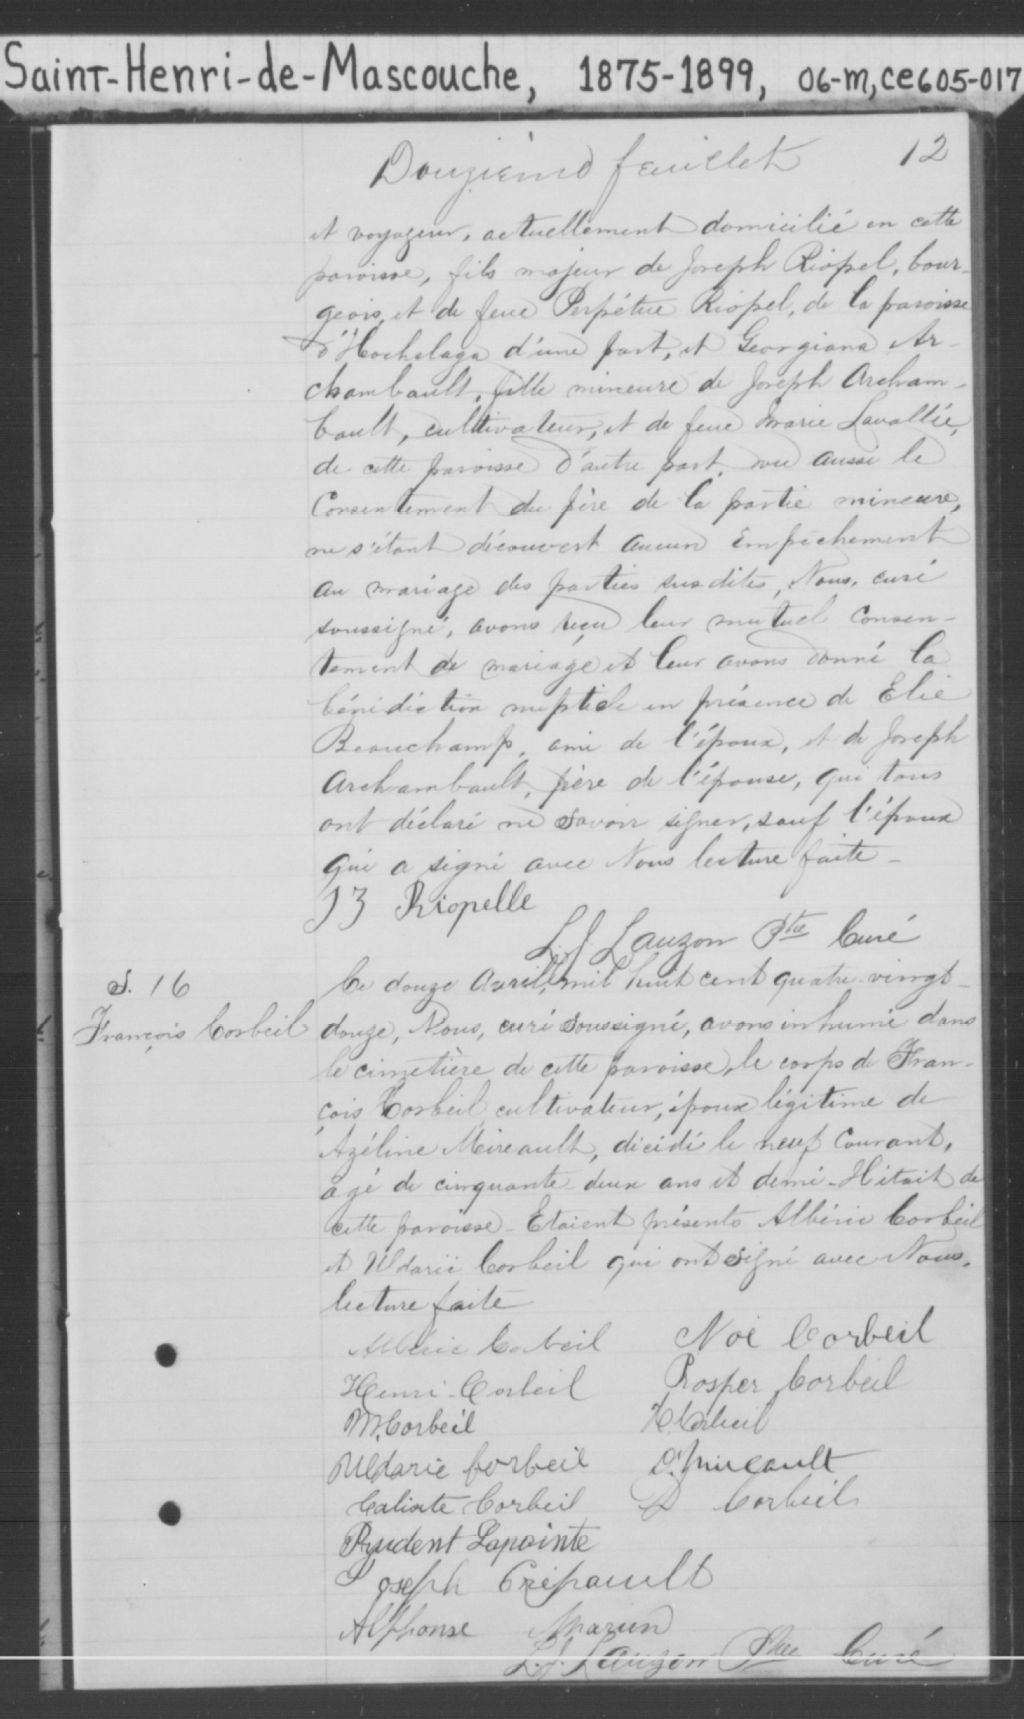 Saint-Henri-de-Mascouche, 1875-1899, 06-M,CE605-017
Douzième feuillet 12
et voyageur, actuellement domicilié en cette
paroisse, fils majeur de Joseph Riopel, bour-
geois, et de feue Perpétue Riopel, de la paroisse
d'Hochelaga d'une part, et Georgiana Ar-
chambault, fille mineure de Joseph Archam-
bault, cultivateur, et de feue Marie Lavallée,
de cette paroisse d'autre part, vu aussi le
Consentement du père de la partie mineure,
ne s'étant découvert aucun Empêchement
au mariage des parties susdites, Nous, curé
soussigné, avons reçu leur mutuel Consen-
tement de mariage et leur avons donné la
bénédiction nuptiale en présence de Elie
Beauchamp, ami de l'époux, et de Joseph
Archambault, père de l'épouse, qui tous
ont déclaré ne savoir signer, sauf l'époux
qui a signé avec Nous lecture faite -
Riopelle
L. J. Lauzon Ptre Curé
S. 16
François Corbeil
Ce douze Avril, mil huit cent quatre-vingt-
douze, Nous, curé soussigné, avons inhumé dans
le cimetière de cette paroisse, le corps de Fran-
çois Corbeil cultivateur, époux légitime de
Azéline Mireault, décédé le neuf Courant,
âgé de cinquante-deux ans et demi. Il était de
cette paroisse - Etaient présents Albéric Corbeil
et Uldaric Corbeil qui ont signé avec Nous,
lecture faite
Albéric Corbeil Noé Corbeil
Henri Corbeil Prosper Corbeil
M. Corbeil H. Corbeil
Uldaric Corbeil Mireault
Calixte Corbeil Corbeil
Prudent Lapointe
Joseph Crépault
Alphonse Marien
L. J. Lauzon Ptre Curé